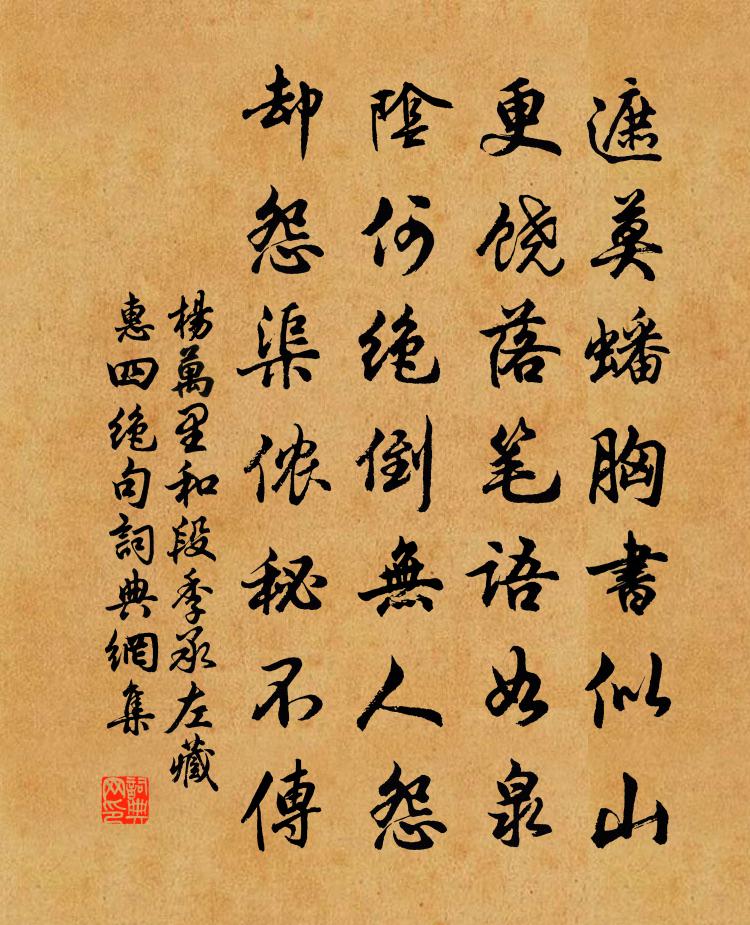 遮莫蟠胸書似山
更饶落笔語如泉
陰何絶倒無人怨
却怨渠侬秘不傳
楊萬里和段季承左藏
惠四絶句詞典網集
詞典网印